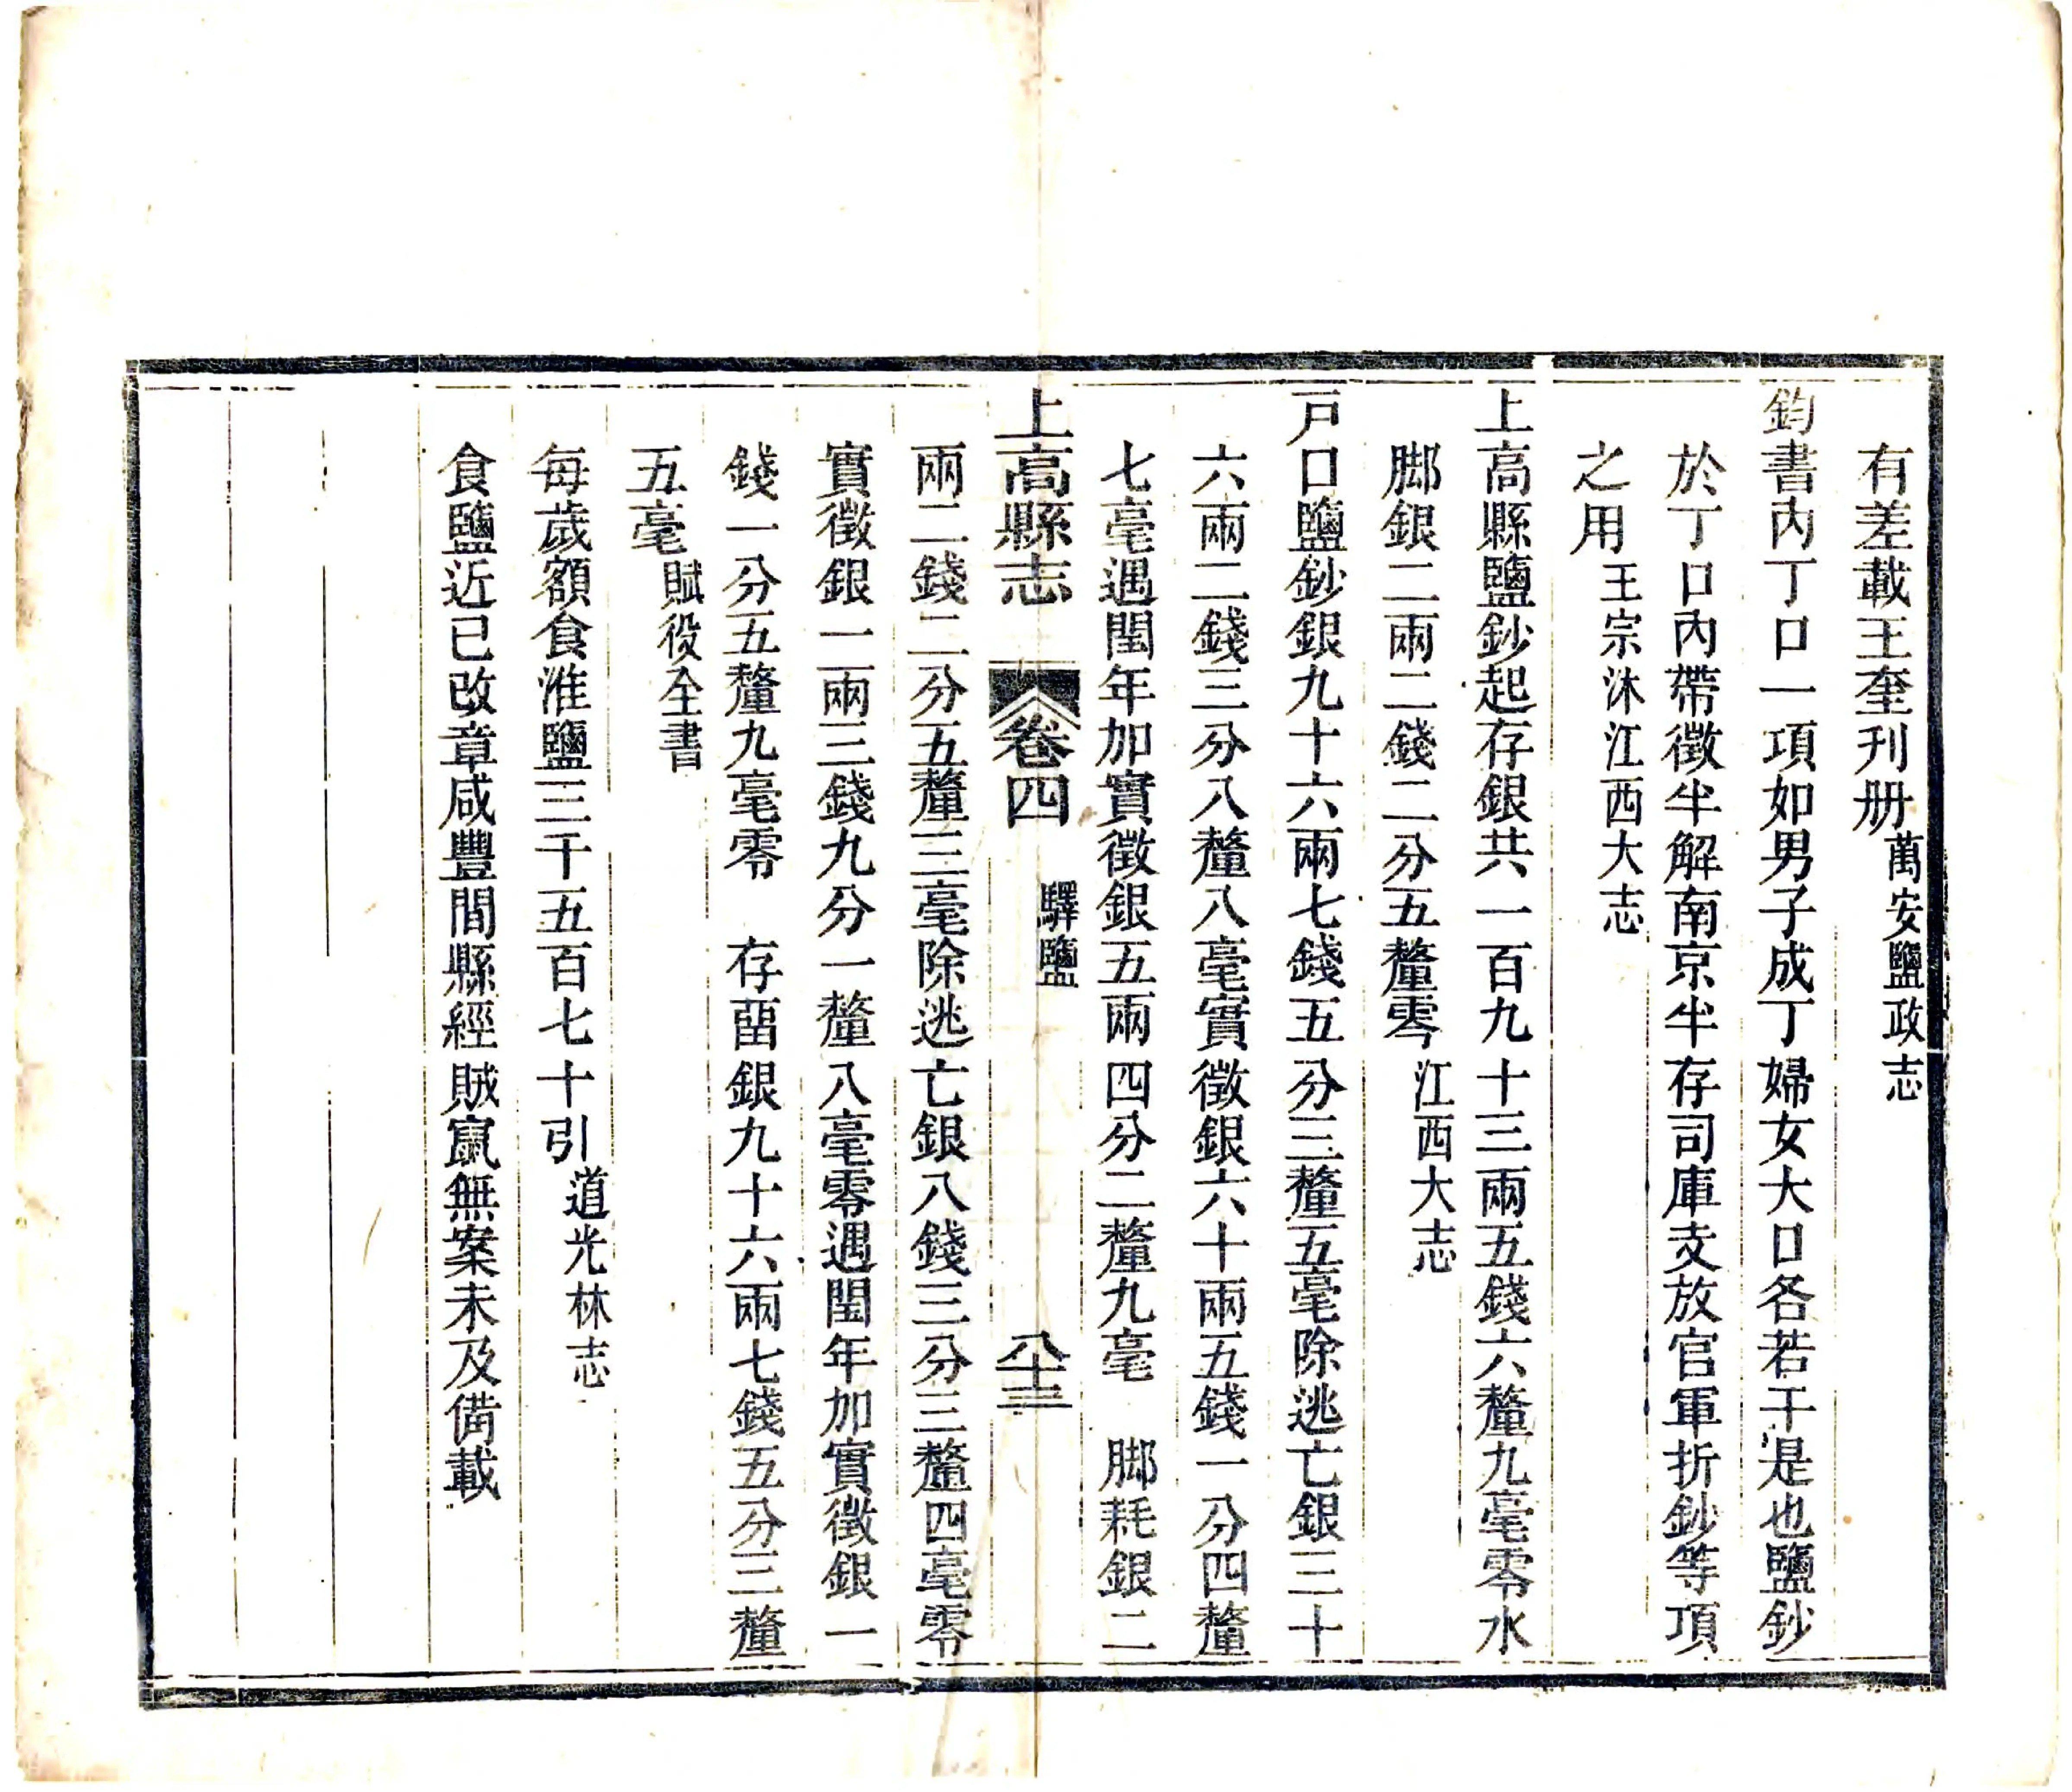 有差載王奎刋册萬安鹽政志
鈞書内丁口一項如男子成丁婦女大口各若干是也鹽鈔
於丁口內帶徵半解南京半存司庫支放官軍折鈔等項
之用王宗沐江西大志
上高縣鹽鈔起存銀共一百九十三兩五錢六釐九毫零水
脚銀二兩二錢二分五釐零江西大志
戸口鹽鈔銀九十六兩七錢五分三釐五毫除逃亡銀三十
六兩二錢三分八釐八毫實徵銀六十兩五錢一分四釐
七毫遇閏年加實徵銀五兩四分二釐九毫　脚耗銀二
上高縣志　卷四　驛鹽　八十三
兩二錢二分五釐三毫除逃亡銀八錢三分三釐四毫零
實徵銀一兩三錢九分一釐八毫零遇閏年加實徵銀一
錢一分五釐九毫零　存畱銀九十六兩七錢五分三釐
五毫賦役全書
每歲額食淮鹽三千五百七十引道光林志
食鹽近已改章咸豐間縣經賊竄無案未及備載